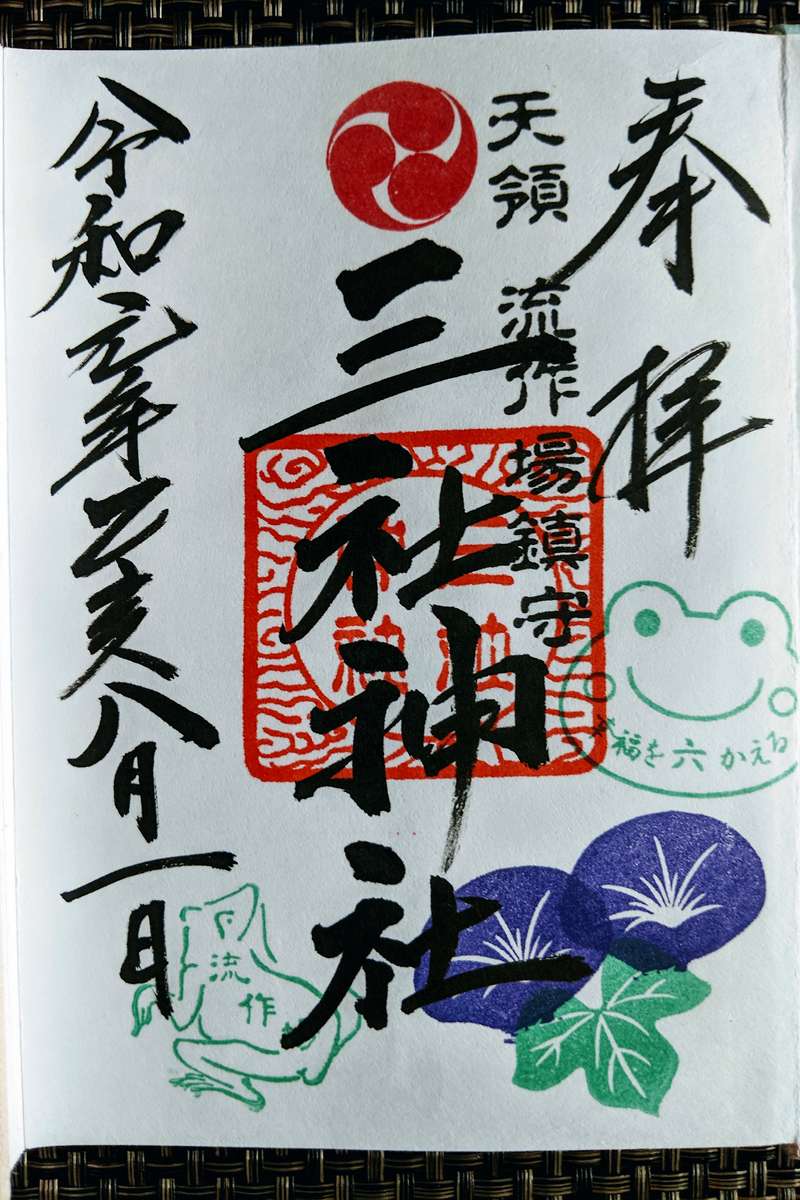 奉拝
天領 流作場鎮守
三社神社
令和元年乙亥八月一日
福を六かえる
流
作